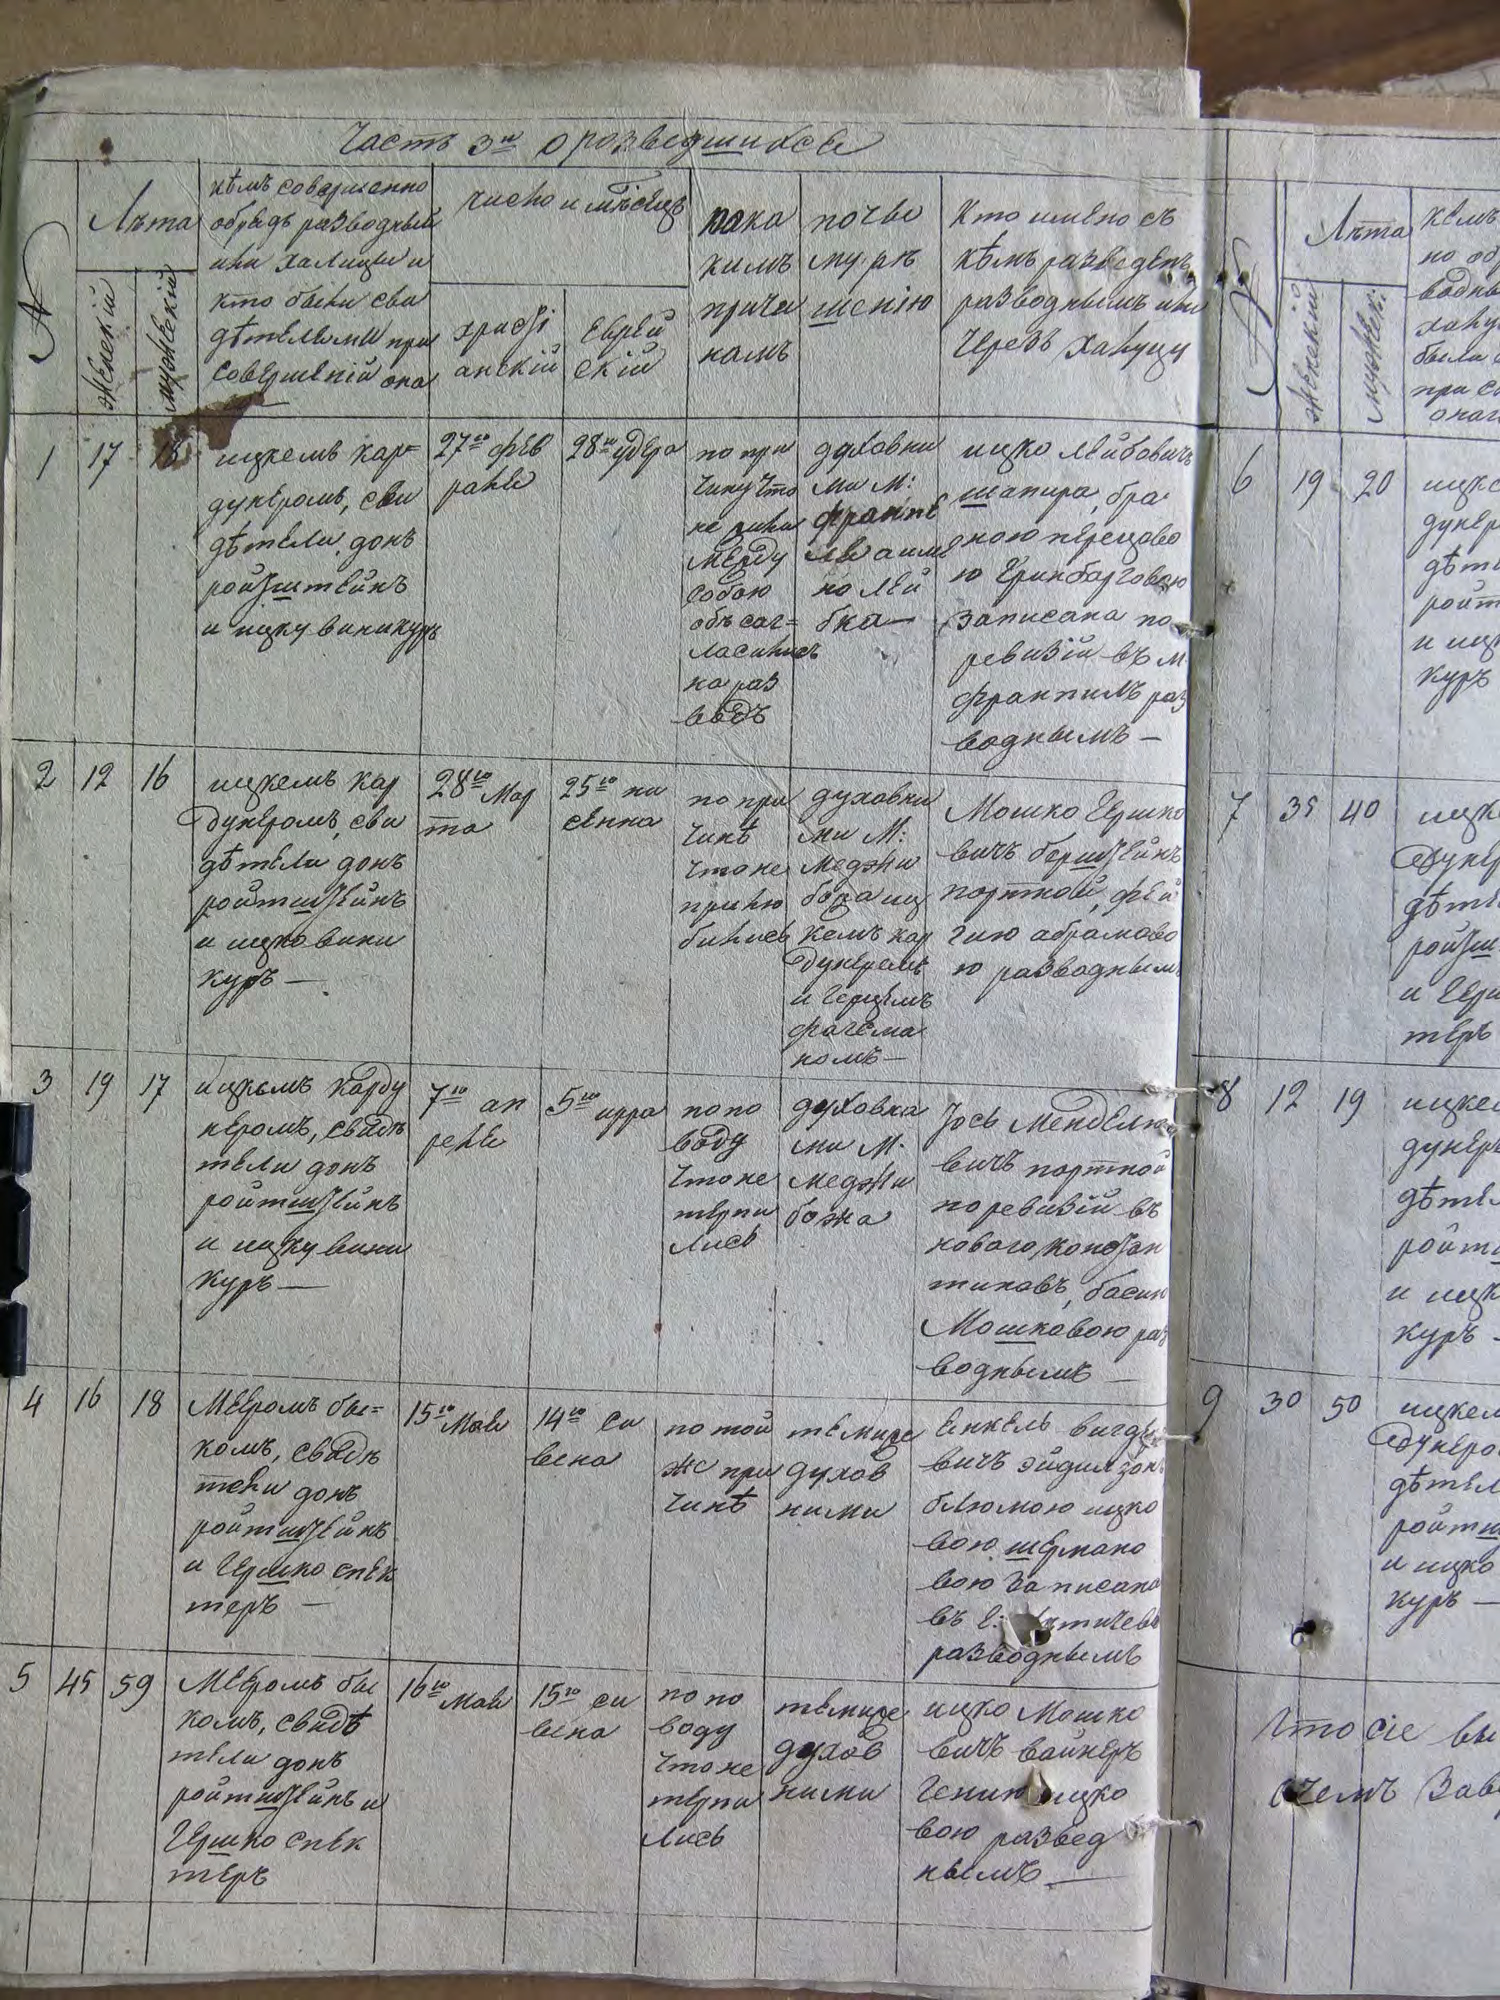 Часть 3я о разведшихся
№
Лѣта
женскій
мужескій
кѣмъ совершенно
обрядъ разводный
или халицы и
кто были сви
дѣтелями при
совершеній она
число и мѣсяцъ
христі
анскій
еврей
скій
по ка
кимъ
причи
намъ
по чье
му рѣ
шенію
кто имено съ
кѣмъ разведенъ
разводнымъ или
черезъ халуцу
1
17
18
ицкемъ кар=
дунеромъ, сви
дѣтели, донъ
ройтштейнъ
и ицку виникуръ
27го фев
раля
28го адера
по при
чину что
не жили
между
собою
объ сог=
ласились
на раз
водъ
духовны
ми м:
франпе
ля аиме
но лей
бка—
ицко лейбовичъ
шапира, бра
ною перецово
ю гринбарговою
записана по
ревизіи въ м.
франпилъ раз
воднымъ —
2
12
16
ицкемъ кар
дунеромъ, сви
дѣтели донъ
ройтштейнъ
и ицко вини
куръ —
28го мар
та
25го ни
сенна
по при
чинѣ
что не
прилю
бились
духовны
ми м:
меджи
божа иц
кемъ кар
дунеремъ
и герцемъ
фагема
номъ —
Мошко гершко
вичъ берштейнъ
портной, фей
гию абрамово
ю разводнымъ
3
19
17
ицкемъ карду
неромъ, свидѣ
тели донъ
ройтштейнъ
и ицку вини
куръ —
7го ап
реля
5го ирра
по по
воду
что не
терпи
лись
духовны
ми м.
меджи
божа
Іось Менделио
вичъ портной
по ревизіи въ
нового констан
тиновъ, басин
Мошковою раз
воднымъ —
4
16
18
Мееромъ бы=
комъ, свидѣ
тели донъ
ройтштейнъ
и гершко спек
теръ —
15го мая
14го си
вена
по той
же при
чинѣ
теми же
духов
ними
енкель вигдо
вичъ эйдилзонъ
блюмою ицко
вою шермано
вою записана
въ г: тичевъ
разводнымъ
5
45
59
Мееромъ бы
комъ, свидѣ
тели донъ
ройтштейнъ и
гершко спек
теръ
16го мая
15го си
вена
по по
воду
что не
терпи
лись
теми же
духов
ними
ицко Мошко
вичъ вайнеръ
гению ицко
вою развед
нымъ —
№
Лѣта
женскій
мужеск:
кемъ
но об
водны
халу
были
при со
онаг
6
19
20
ицке
дунер
дѣт
ройт
и ицк
куръ
7
35
40
ицке
дунер
дѣте
ройтш
и герш
теръ
8
12
19
ицкем
дунеръ
дѣте
ройт
и ицк
куръ —
9
30
50
ицкем
дунеро
дѣтел
ройтш
и ицко
куръ —
что сіе вы
счемъ Заве